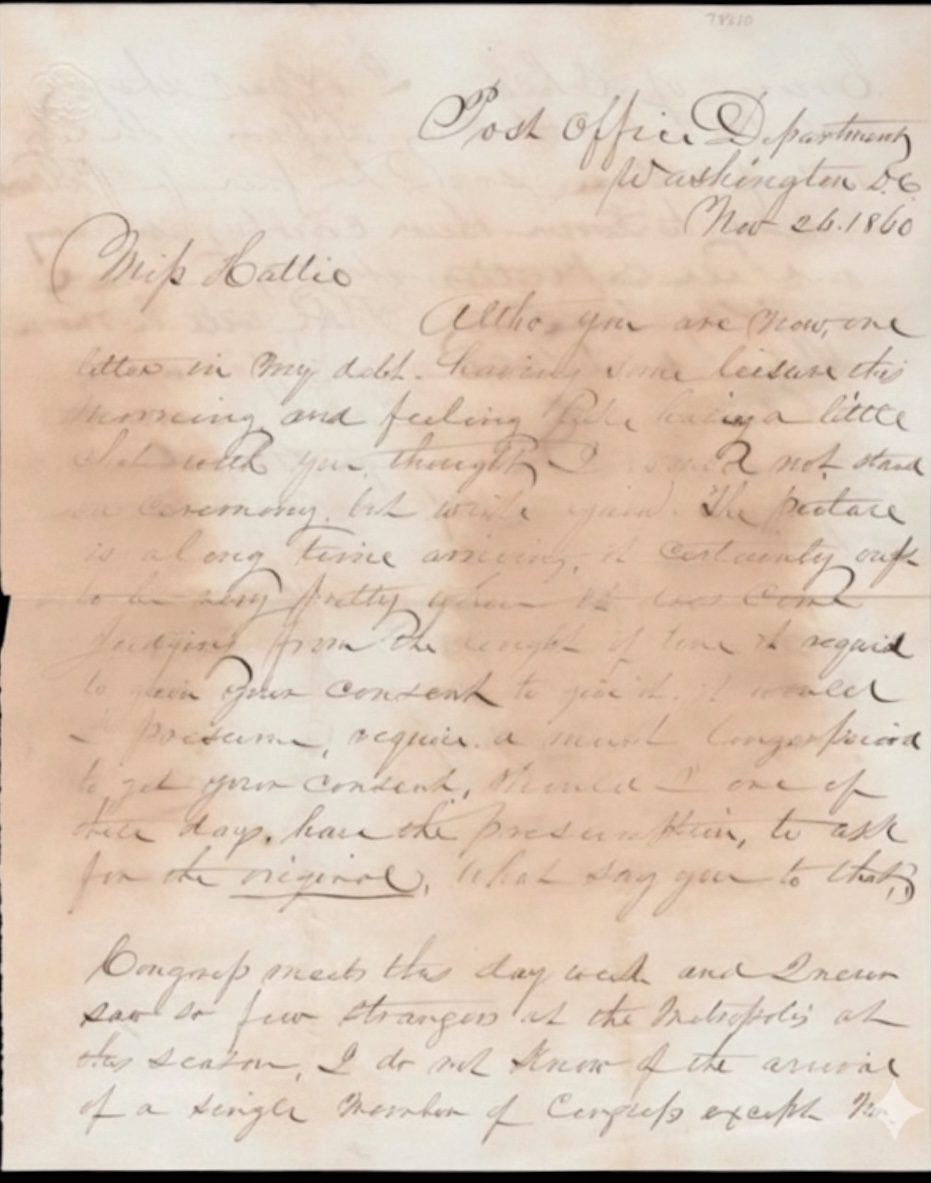 78610
Post Office Department
Washington D.C
Nov 26. 1860
Miss Hattie
Altho, you are now, one
letter in my debt. having some leisure this
morning and feeling like a little
chat with you, thought I would not stand
on ceremony, but write again. The picture
is a long time arriving, it certainly ought
to be very pretty when it does come
judging from the length of time it required
to gain your consent to give it, it would
I presume, require a much longer period
to get your consent, should I one of
these days, have the presumption, to ask
for the original, What say you to that,
Congress meets this day week and I never
saw so few strangers at the Metropolis at
this season, I do not know of the arrival
of a single Member of Congress except